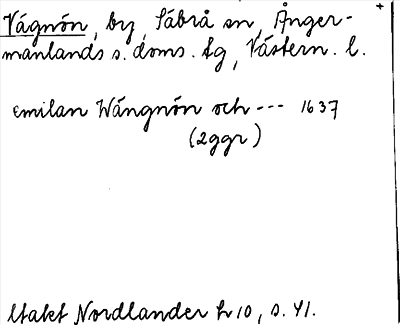 +
Vägnön, by, Säbrå sn, Ånger-
manlands s. doms. tg, Västern. l.
emilan Wängnön och --- 1637
(2ggr)
Utakt Nordlander h 10, s. 41.